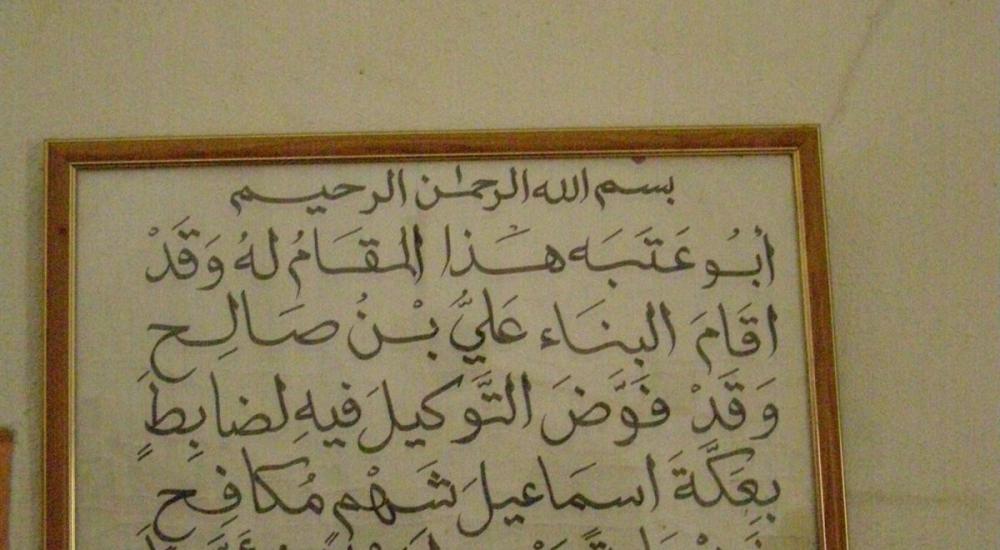 بسم الله الرحمٰن الرحيم
أبُو عَتَبَه هَذا المقَامُ لهُ وَقَدْ
اقَامَ البنَاء عَليُّ بْنُ صَالِح
وَقَدْ فَوَّضَ التَّوكيلَ فيهِ لضابِطٍ
بِعَكَّةَ اسمَاعيلَ شَهْم مُكافِح